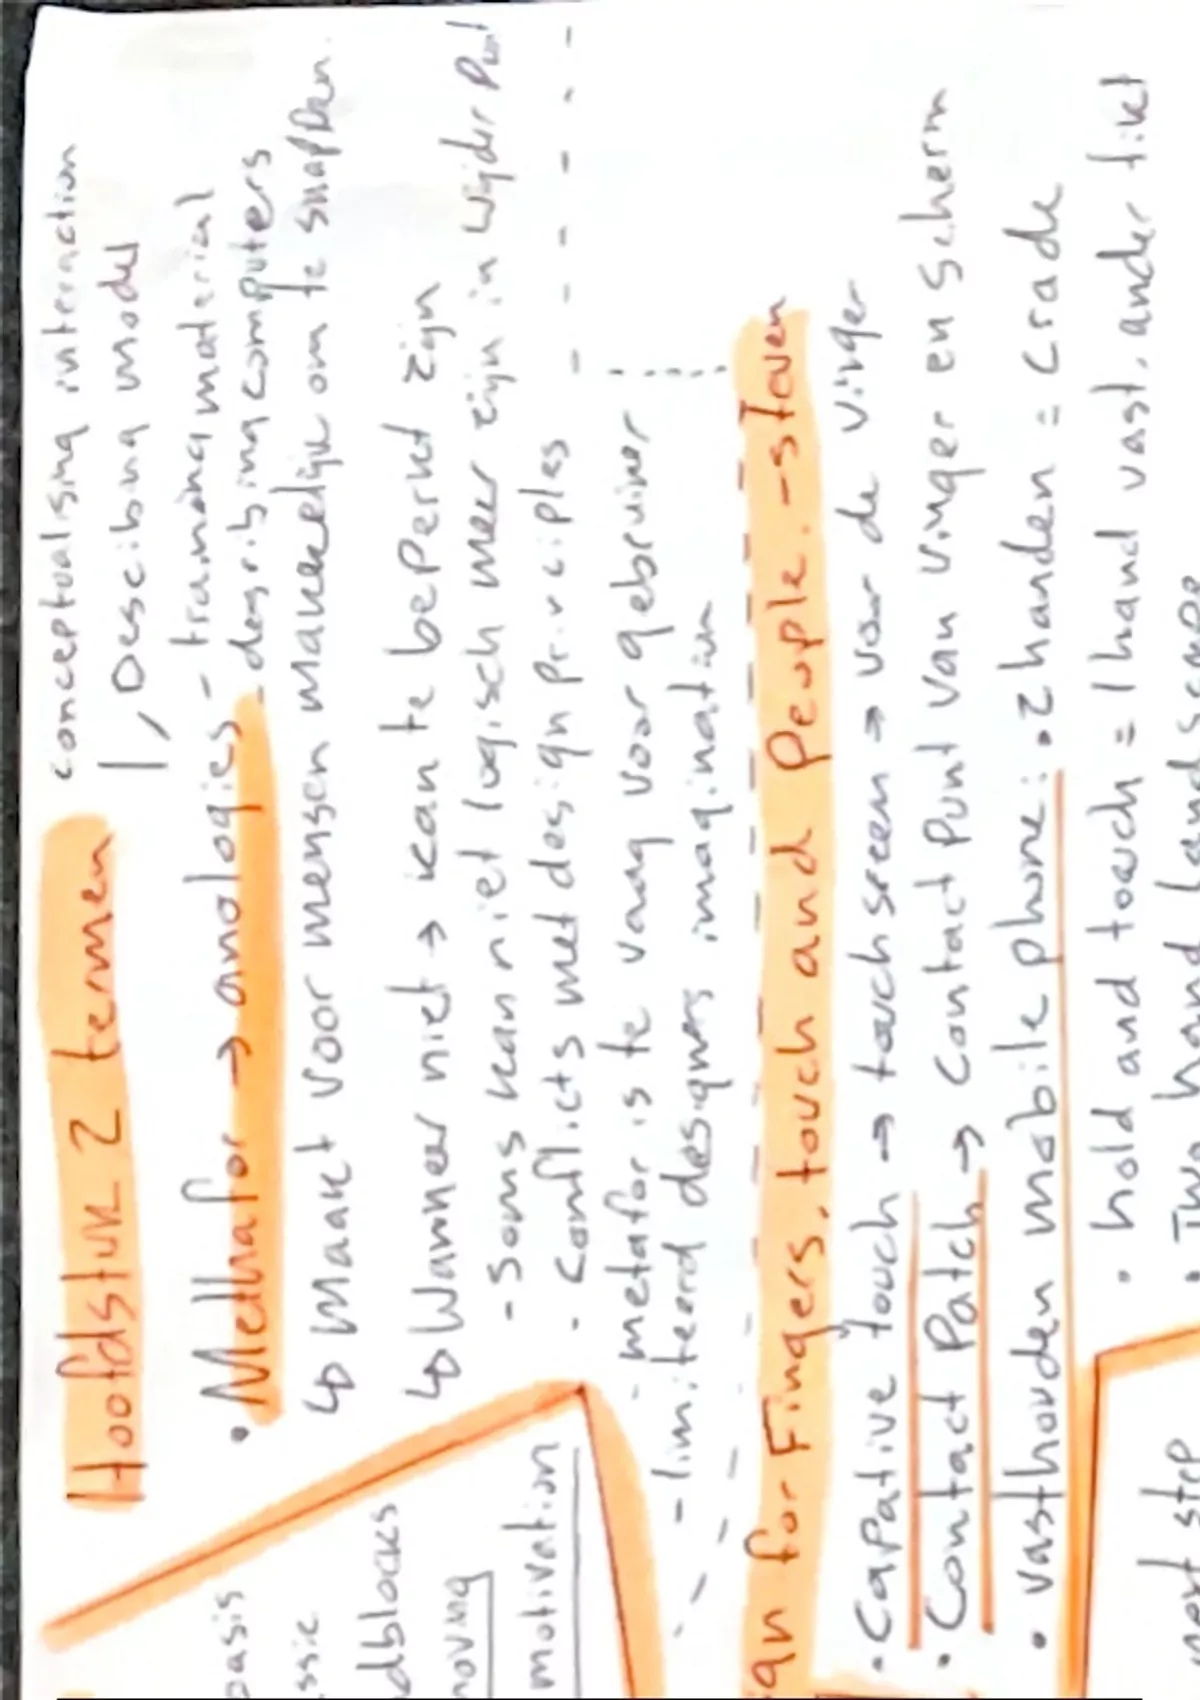 Hoofdstuk 2 termen
conceptualsing interaction
↳ Descibing model
• Methafor → anologies - training material
- describing computers
↳ Maakt voor mensen makkelijk om te snappen.
↳ Wanneer niet → kan te beperkt zijn
- Soms kan niet logisch meer zijn in wijder punt
- Conflicts met design principles
- metafor is te vaag voor gebruiker
- limiteerd designers imagination
gn for Fingers, touch and People. - steven
• Capative touch → touch sreen → voor de vinger
• Contact Patch → Contact Punt van vinger en scherm
• vasthouden mobile phone: • 2 handen = crade
• hold and touch = 1 hand vast, ander tikt
• Two hand landscape
oasis
ssie
dblocks
moving
motivation
step